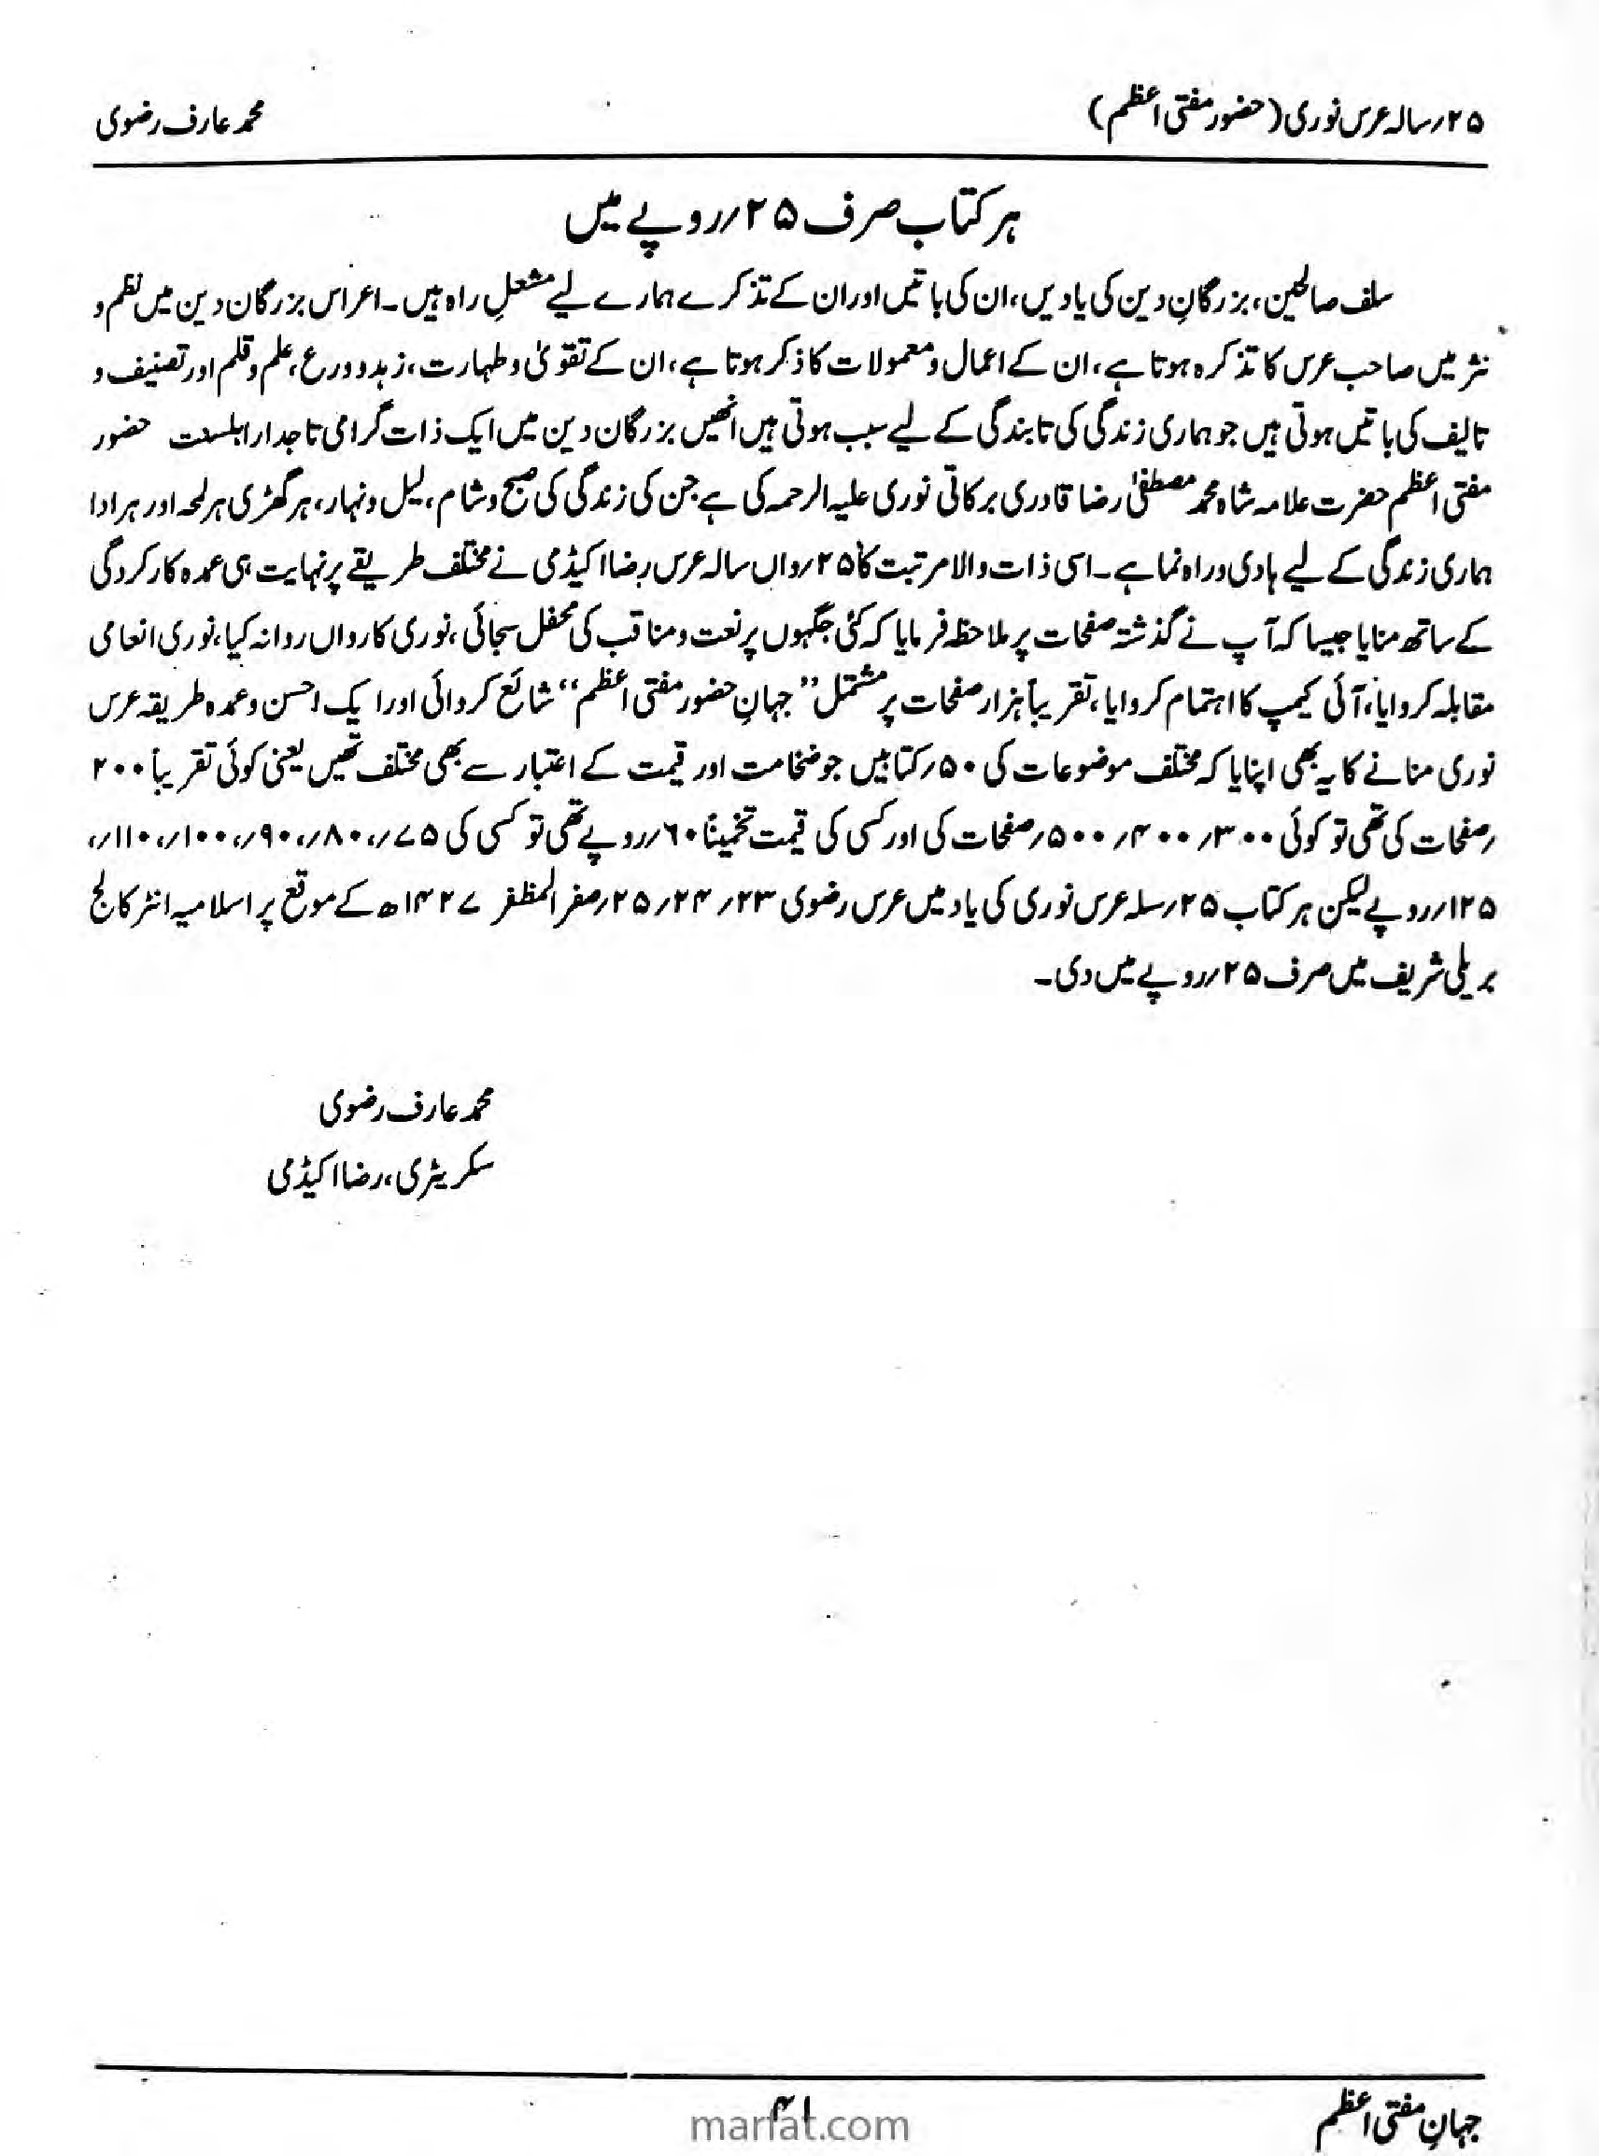 ۲۵؍سالہ عرس نوری (حضور مفتی اعظم) محمد عارف رضوی
ہر کتاب صرف ۲۵؍روپے میں
سلف صالحین، بزرگانِ دین کی یادیں، ان کی باتیں اور ان کے تذکرے ہمارے لیے مشعلِ راہ ہیں۔ اعراس بزرگان دین میں نظم و
نثر میں صاحب عرس کا تذکرہ ہوتا ہے، ان کے اعمال و معمولات کا ذکر ہوتا ہے، ان کے تقویٰ و طہارت، زہد و ورع، علم و قلم اور تصنیف و
تالیف کی باتیں ہوتی ہیں جو ہماری زندگی کی تابندگی کے لیے سبب ہوتی ہیں انھیں بزرگان دین میں ایک ذات گرامی تاجدار اہلسنت حضور
مفتی اعظم حضرت علامہ شاہ محمد مصطفیٰ رضا قادری برکاتی نوری علیہ الرحمہ کی ہے جن کی زندگی کی صبح و شام، لیل و نہار، ہر گھڑی ہر لمحہ اور ہر ادا
ہماری زندگی کے لیے ہادی و راہ نما ہے۔ اسی ذات والا مرتبت کا ۲۵؍واں سالہ عرس رضا اکیڈمی نے مختلف طریقے پر نہایت ہی عمدہ کارکردگی
کے ساتھ منایا جیسا کہ آپ نے گذشتہ صفحات پر ملاحظہ فرمایا کہ کئی جگہوں پر نعت و مناقب کی محفل سجائی، نوری کارواں روانہ کیا، نوری انعامی
مقابلہ کروایا، آئی کیمپ کا اہتمام کروایا، تقریباً ہزار صفحات پر مشتمل ”جہانِ حضور مفتی اعظم“ شائع کروائی اور ایک احسن و عمدہ طریقہ عرس
نوری منانے کا یہ بھی اپنایا کہ مختلف موضوعات کی ۵۰؍کتابیں جو ضخامت اور قیمت کے اعتبار سے بھی مختلف تھیں یعنی کوئی تقریباً ۲۰۰
؍صفحات کی تھی تو کوئی ۳۰۰؍۴۰۰؍۵۰۰؍صفحات کی اور کسی کی قیمت تخمیناً ۶۰؍روپے تھی تو کسی کی ۷۵؍، ۸۰؍، ۹۰؍، ۱۰۰؍، ۱۱۰؍،
۱۲۵؍روپے لیکن ہر کتاب ۲۵؍سلہ عرس نوری کی یاد میں عرس رضوی ۲۳؍۲۴؍۲۵؍صفر المظفر ۱۴۲۷ھ کے موقع پر اسلامیہ انٹر کالج
بریلی شریف میں صرف ۲۵؍روپے میں دی۔
محمد عارف رضوی
سکریٹری، رضا اکیڈمی
جہانِ مفتی اعظم ۴۱
marfat.com